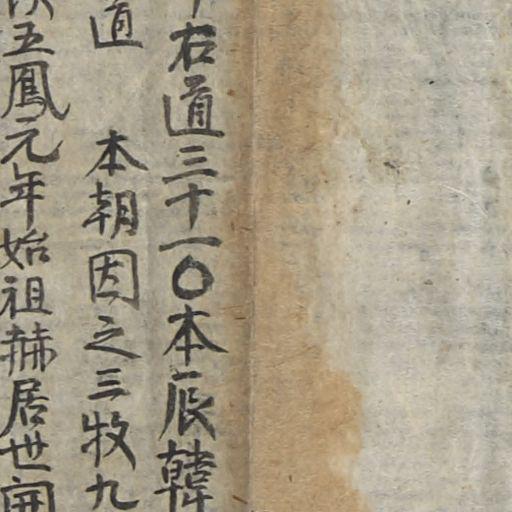 右道三十一〇本辰韓
道 本朝因之三牧九
五鳳元年始祖赫居世開